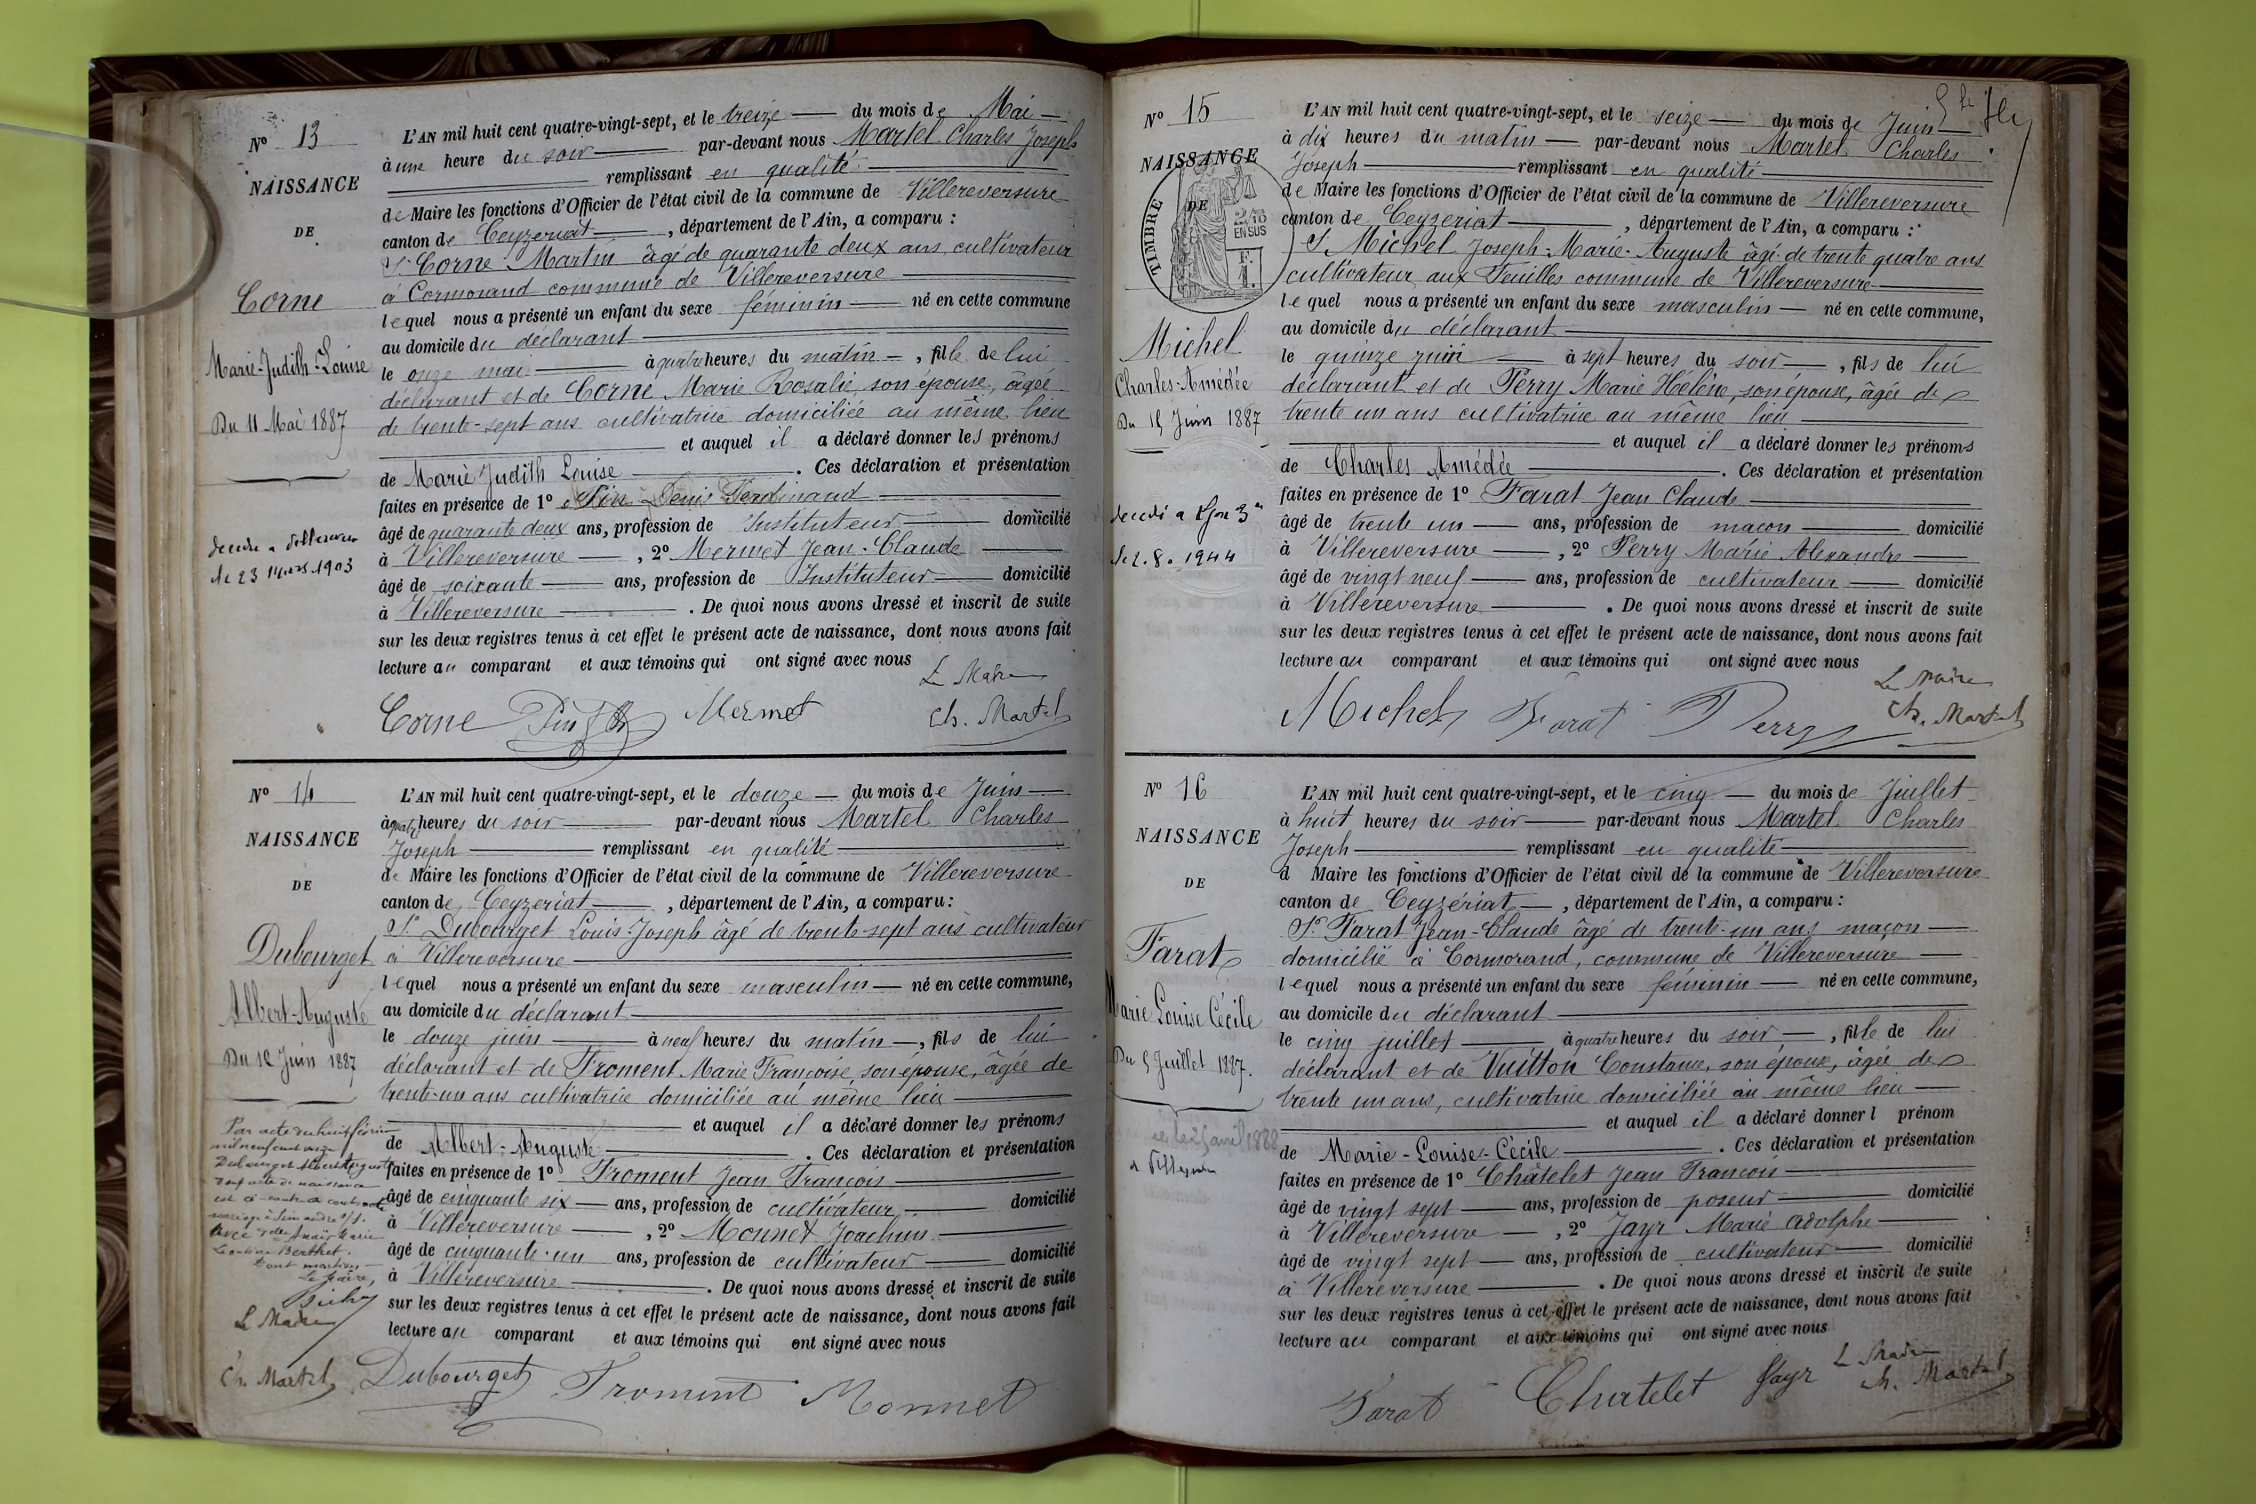 N° 13
NAISSANCE
DE
Corne
Marie-Judith-Louise
Du 11 Mai 1887
le 23 1903
L'AN mil huit cent quatre-vingt-sept, et le treize du mois de Mai
à une heure du soir par-devant nous Martel Charles Joseph
remplissant en qualité
de Maire les fonctions d'Officier de l'état civil de la commune de Villereversure
canton de Ceyzeriat, département de l'Ain, a comparu :
Sr Corne Martin âgé de quarante deux ans, cultivateur
à Cormorand commune de Villereversure
lequel nous a présenté un enfant du sexe féminin né en cette commune
au domicile du déclarant
le onze mai à quatre heures du matin, fille de lui
déclarant et de Corne Marie Rosalie, son épouse, âgée
de trente-sept ans cultivatrice domiciliée au même lieu
et auquel il a déclaré donner les prénoms
de Marie Judith Louise. Ces déclaration et présentation
faites en présence de 1° Pin Denis Ferdinand
âgé de quarante deux ans, profession de Instituteur domicilié
à Villereversure, 2° Mermet Jean-Claude
âgé de soixante ans, profession de Instituteur domicilié
à Villereversure. De quoi nous avons dressé et inscrit de suite
sur les deux registres tenus à cet effet le présent acte de naissance, dont nous avons fait
lecture au comparant et aux témoins qui ont signé avec nous
Le Maire
Corne Pin Mermet Ch. Martel
N° 14
NAISSANCE
DE
Dubourget
Albert-Auguste
Du 12 Juin 1887
Par acte du huit février
mil neuf cent onze
Dubourget Albert Auguste
acte de naissance
est ci-contre a contracté
mariage à Simandre s/S.
avec Marie
Berthet.
Dont mention
Le Maire,
Le Maire
Ch. Martel
L'AN mil huit cent quatre-vingt-sept, et le douze du mois de Juin
à quatre heures du soir par-devant nous Martel Charles
Joseph remplissant en qualité
de Maire les fonctions d'Officier de l'état civil de la commune de Villereversure
canton de Ceyzeriat, département de l'Ain, a comparu :
Sr Dubourget Louis-Joseph âgé de trente-sept ans cultivateur
à Villereversure
lequel nous a présenté un enfant du sexe masculin né en cette commune,
au domicile du déclarant
le douze juin à neuf heures du matin, fils de lui
déclarant et de Froment Marie Françoise, son épouse, âgée de
trente-un ans cultivatrice domiciliée au même lieu
et auquel il a déclaré donner les prénoms
de Albert-Auguste. Ces déclaration et présentation
faites en présence de 1° Froment Jean François
âgé de cinquante six ans, profession de cultivateur domicilié
à Villereversure, 2° Monnet Joachim
âgé de cinquante-un ans, profession de cultivateur domicilié
à Villereversure. De quoi nous avons dressé et inscrit de suite
sur les deux registres tenus à cet effet le présent acte de naissance, dont nous avons fait
lecture au comparant et aux témoins qui ont signé avec nous
Dubourget Froment Monnet
N° 15
NAISSANCE
DE
TIMBRE
2/10
EN SUS
F.
1.
Michel
Charles-Amédée
Du 15 Juin 1887
décédé à Lyon 3e
le 2.8.1944
L'AN mil huit cent quatre-vingt-sept, et le seize du mois de Juin
à dix heures du matin par-devant nous Martel Charles
Joseph remplissant en qualité
de Maire les fonctions d'Officier de l'état civil de la commune de Villereversure
canton de Ceyzeriat, département de l'Ain, a comparu :
Sr Michel Joseph-Marie-Auguste âgé de trente quatre ans
cultivateur aux Feuilles commune de Villereversure
lequel nous a présenté un enfant du sexe masculin né en cette commune,
au domicile du déclarant
le quinze juin à sept heures du soir, fils de lui
déclarant et de Perry Marie Hélène, son épouse, âgée de
trente un ans cultivatrice au même lieu
et auquel il a déclaré donner les prénoms
de Charles Amédée. Ces déclaration et présentation
faites en présence de 1° Farat Jean Claude
âgé de trente un ans, profession de maçon domicilié
à Villereversure, 2° Perry Marie Alexandre
âgé de vingt neuf ans, profession de cultivateur domicilié
à Villereversure. De quoi nous avons dressé et inscrit de suite
sur les deux registres tenus à cet effet le présent acte de naissance, dont nous avons fait
lecture au comparant et aux témoins qui ont signé avec nous
Le Maire
Michel Farat Perry Ch. Martel
N° 16
NAISSANCE
DE
Farat
Marie Louise Cécile
Du 5 Juillet 1887.
L'AN mil huit cent quatre-vingt-sept, et le cinq du mois de Juillet
à huit heures du soir par-devant nous Martel Charles
Joseph remplissant en qualité
d Maire les fonctions d'Officier de l'état civil de la commune de Villereversure
canton de Ceyzériat, département de l'Ain, a comparu :
Sr Farat Jean-Claude âgé de trente-un ans maçon
domicilié à Cormorand, commune de Villereversure
lequel nous a présenté un enfant du sexe féminin né en cette commune,
au domicile du déclarant
le cinq juillet à quatre heures du soir, fille de lui
déclarant et de Vuitton Constance, son épouse, âgée de
trente un ans, cultivatrice domiciliée au même lieu
et auquel il a déclaré donner l prénom
de Marie-Louise-Cécile. Ces déclaration et présentation
faites en présence de 1° Châtelet Jean François
âgé de vingt sept ans, profession de poseur domicilié
à Villereversure, 2° Jayr Marie Adolphe
âgé de vingt sept ans, profession de cultivateur domicilié
à Villereversure. De quoi nous avons dressé et inscrit de suite
sur les deux registres tenus à cet effet le présent acte de naissance, dont nous avons fait
lecture au comparant et aux témoins qui ont signé avec nous
Le Maire
Farat Chatelet Jayr Ch. Martel